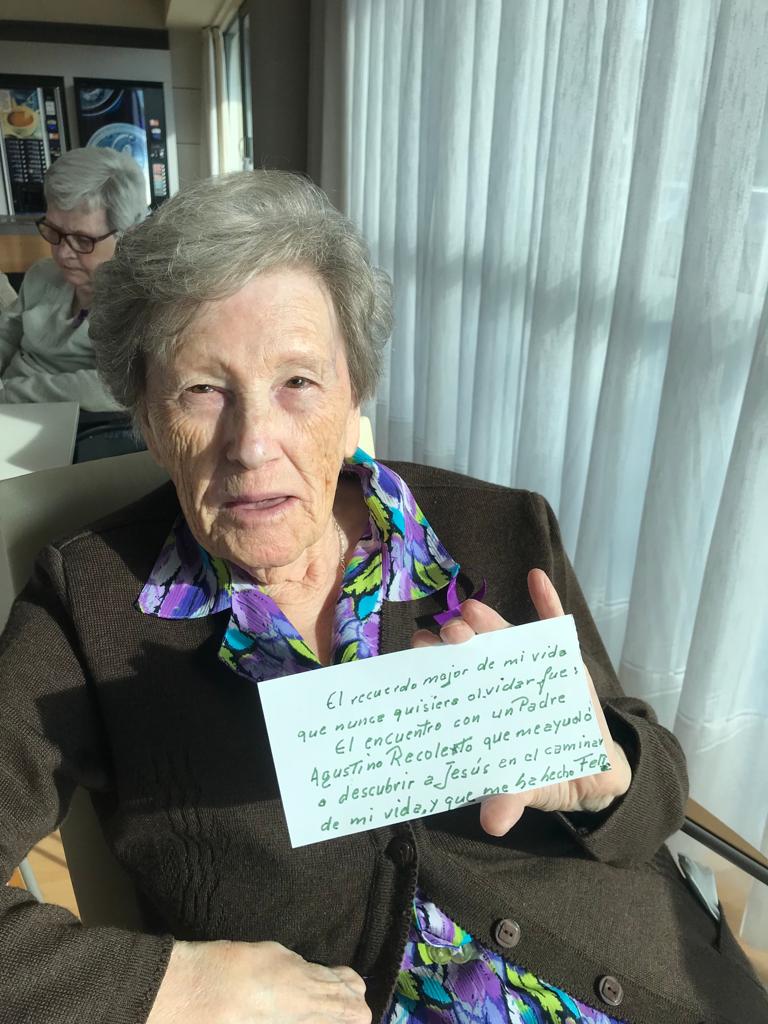 El recuerdo major de mi vida
que nunca quisiera olvidar fue:
El encuentro con un Padre
Agustino Recoleto que me ayudó
a descubrir a Jesús en el caminar
de mi vida, y que me ha hecho Feliz